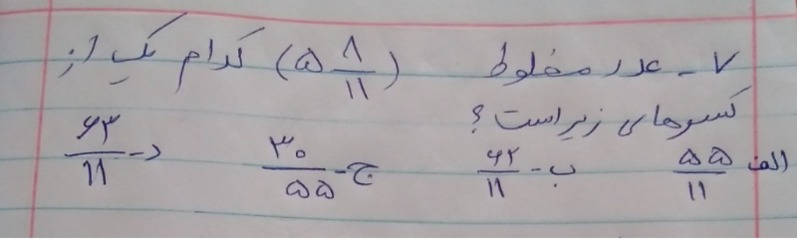 ۷ - عدد مخلوط (۵ ۸/۱۱) کدام یک از
کسرهای زیر است ؟
الف ۵۵/۱۱ ب - ۶۲/۱۱ ج - ۳۰/۵۵ د - ۶۳/۱۱